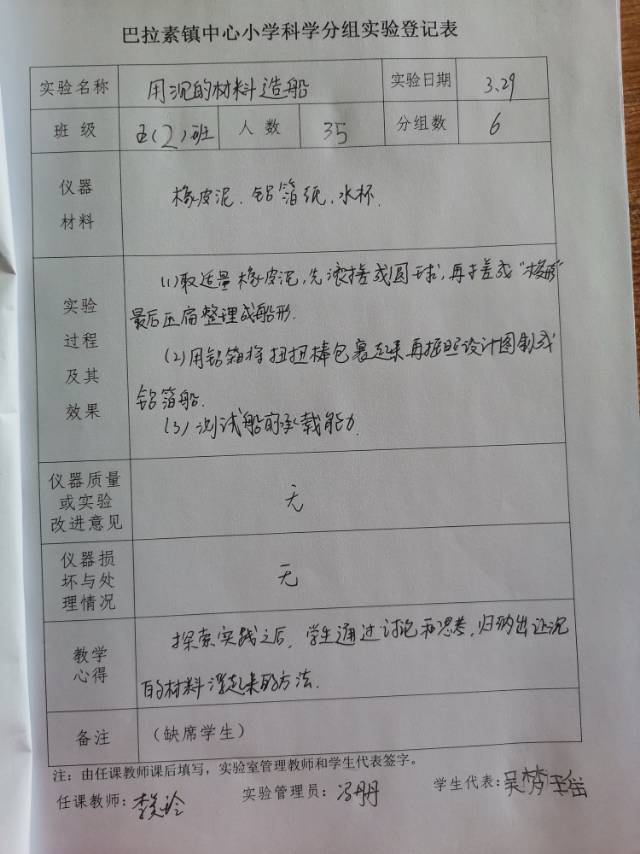 巴拉素镇中心小学科学分组实验登记表
实验名称 用沉的材料造船 实验日期 3.29
班 级 五(2)班 人 数 35 分组数 6
仪器
材料
橡皮泥、铝箔纸、水杯.
实验
过程
及其
效果
(1)取适量橡皮泥,先滚搓成圆球,再搓成"梭形"
最后压扁整理成船形.
(2)用铝箔将扭扭棒包裹起来再按照设计图制成
铝箔船.
(3)测试船的承载能力
仪器质量
或实验
改进意见
无
仪器损
坏与处
理情况
无
教学
心得
探索实践之后,学生通过讨论和思考,归纳出让沉
的材料浮起来的方法.
备注 (缺席学生)
注:由任课教师课后填写,实验室管理教师和学生代表签字。
任课教师: 实验管理员:冯丹丹 学生代表:吴梦瑶